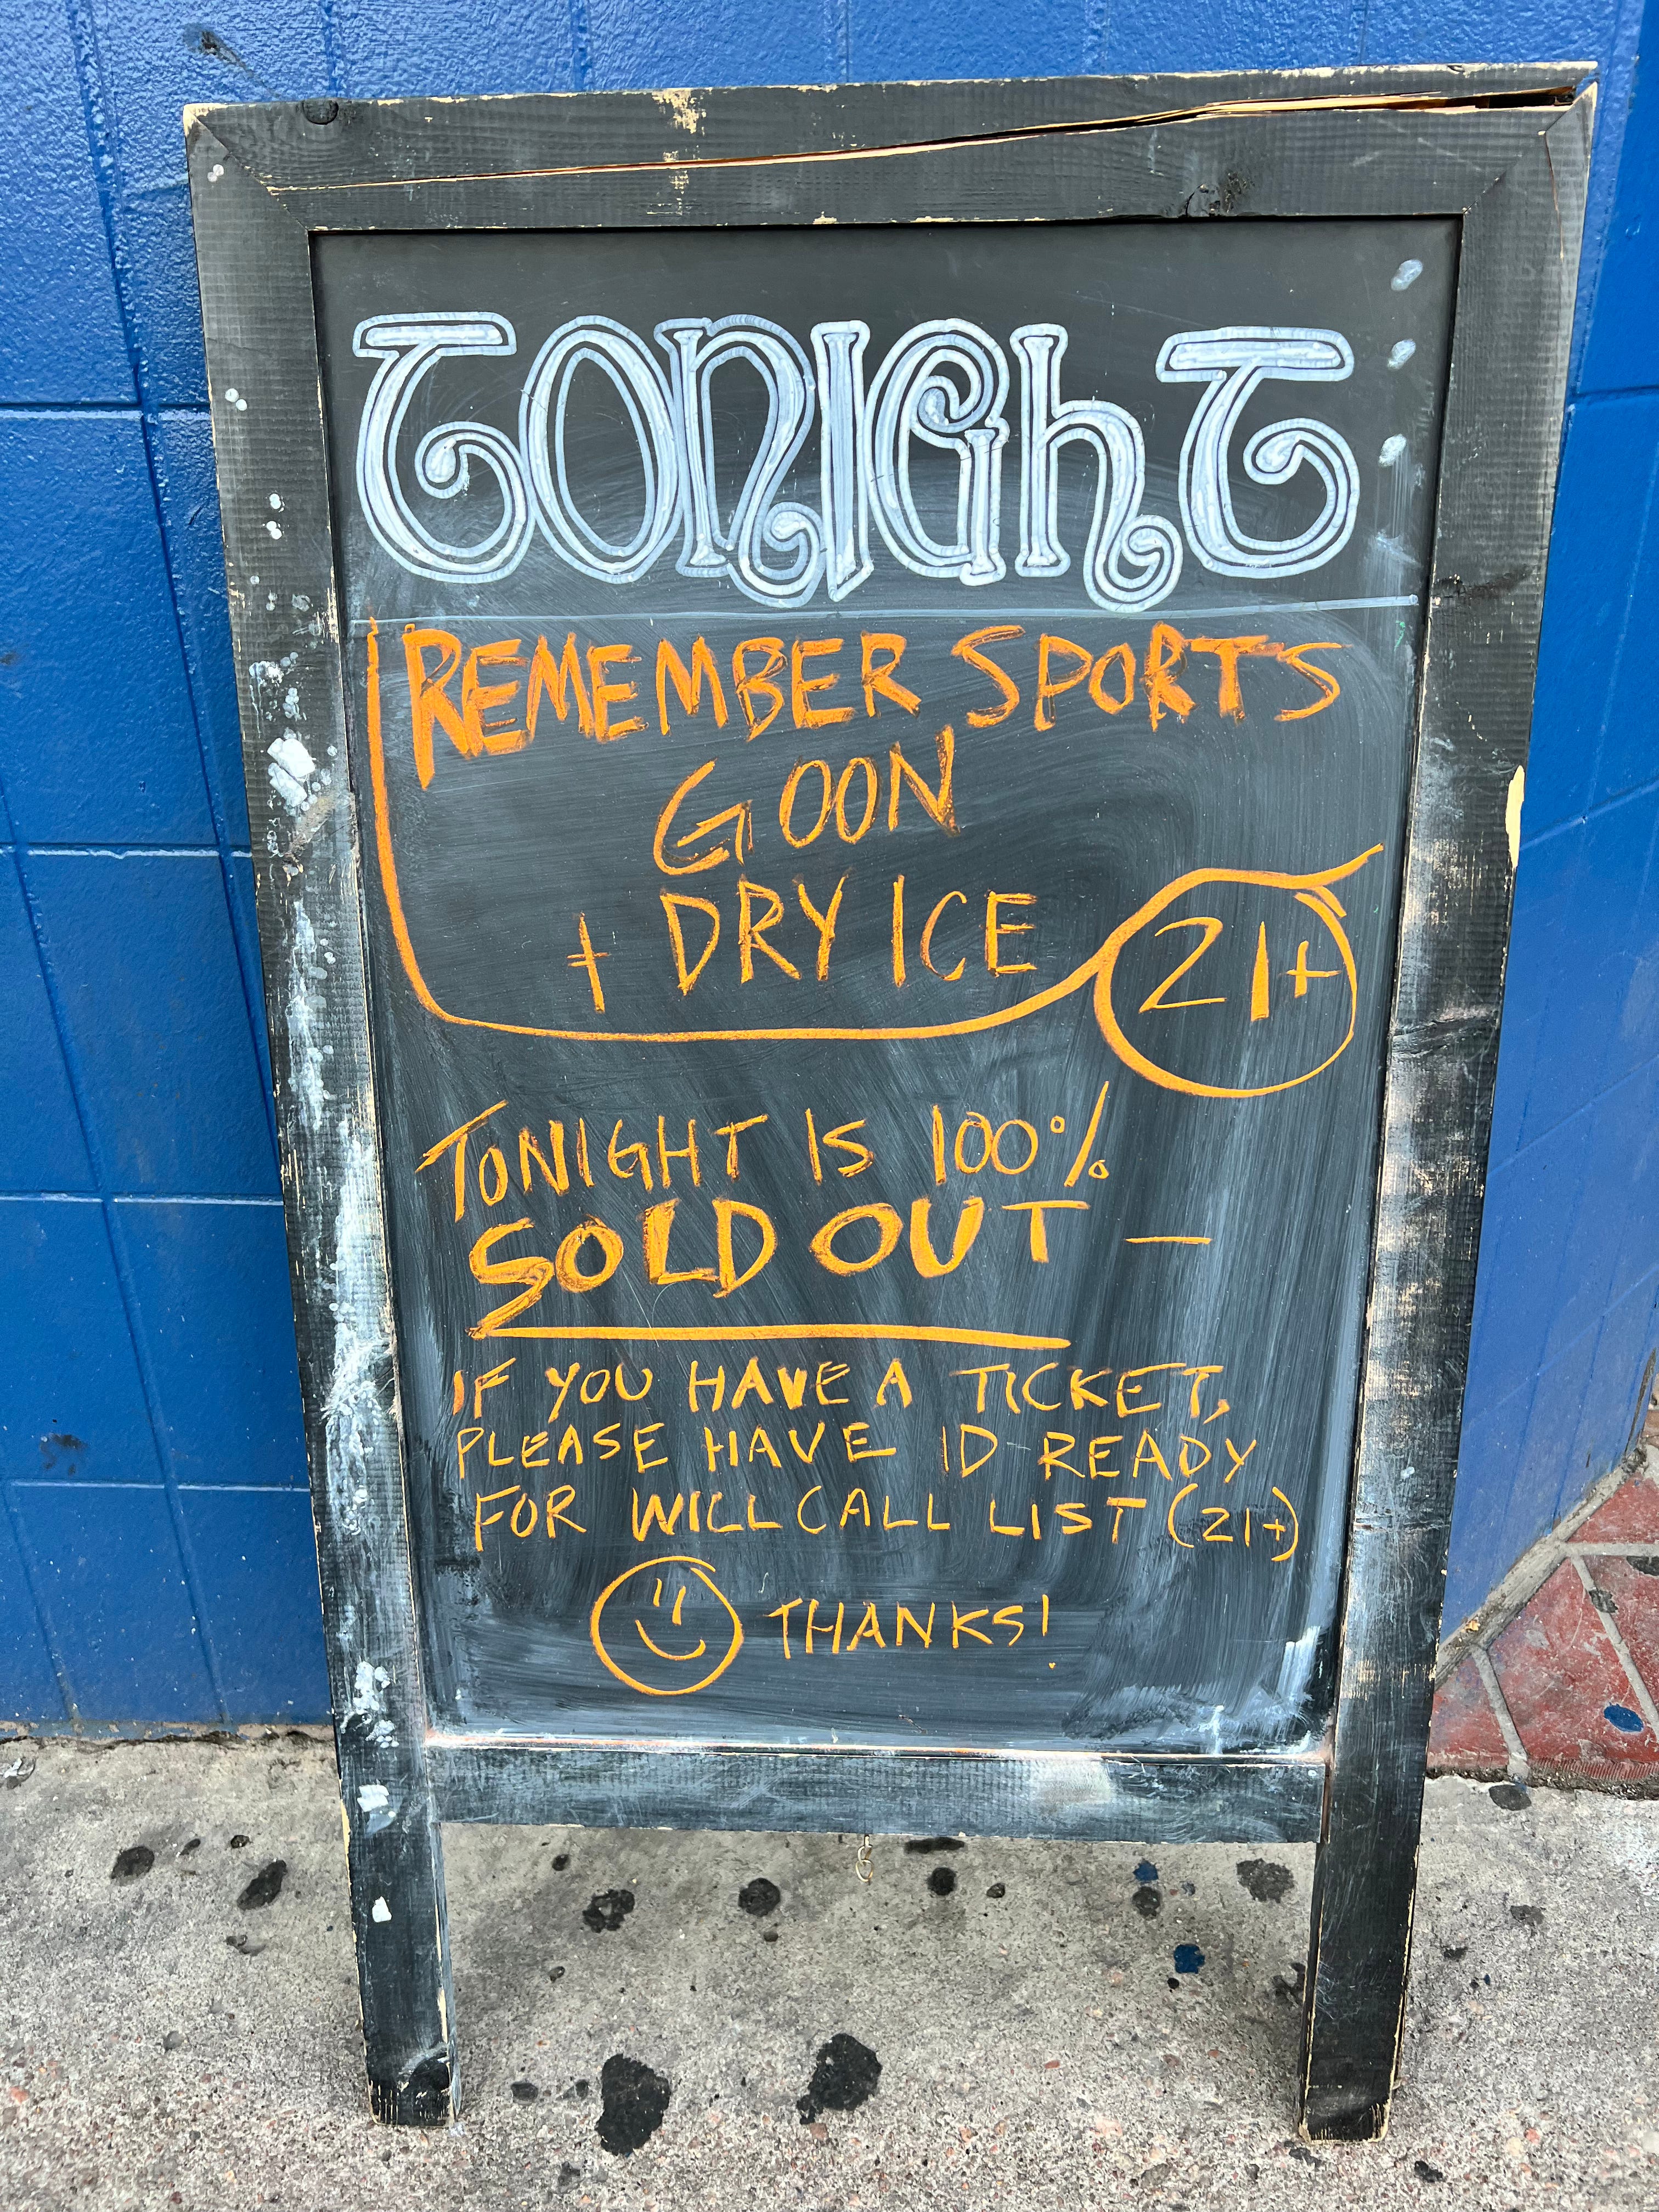 TONIGHT
REMEMBER SPORTS
GOON
+ DRY ICE
21+
TONIGHT IS 100%
SOLD OUT —
IF YOU HAVE A TICKET,
PLEASE HAVE ID READY
FOR WILL CALL LIST (21+)
THANKS!